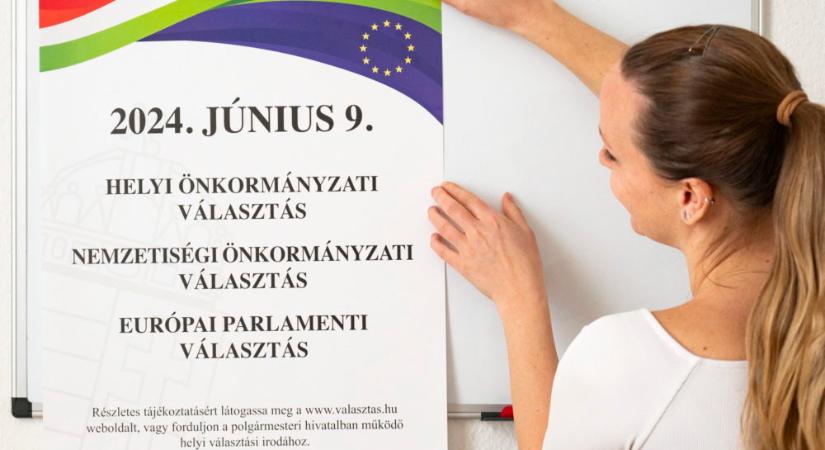 2024. JÚNIUS 9.
HELYI ÖNKORMÁNYZATI
VÁLASZTÁS
NEMZETISÉGI ÖNKORMÁNYZATI
VÁLASZTÁS
EURÓPAI PARLAMENTI
VÁLASZTÁS
Részletes tájékoztatásért látogassa meg a www.valasztas.hu
weboldalt, vagy forduljon a polgármesteri hivatalban működő
helyi választási irodához.